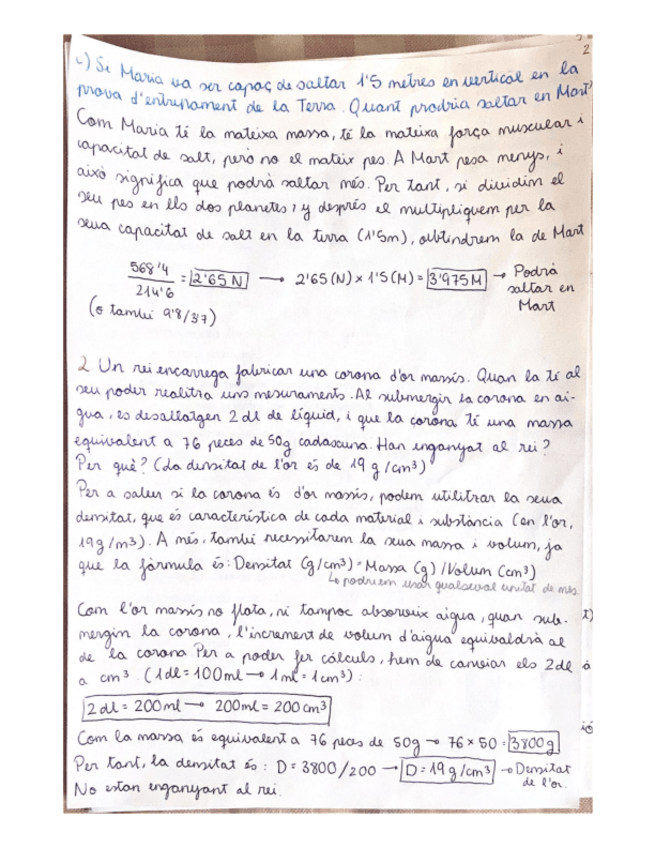 2
c) Si Maria va ser capaç de saltar 1'5 metres en vertical en la
prova d'entrenament de la Terra. Quant prodria saltar en Mart?
Com Maria té la mateixa massa, té la mateixa força muscular i
capacitat de salt, però no el mateix pes. A Mart pesa menys, i
això significa que podrà saltar més. Per tant, si dividim el
seu pes en els dos planetes, y després el multipliquem per la
seua capacitat de salt en la terra (1'5m), obtindrem la de Mart
568'4
214'6
= 2'65 N → 2'65 (N) × 1'5 (M) = 3'975 M → Podrà
saltar en
Mart
(o també 9'8/3'7)
2. Un rei encarrega fabricar una corona d'or massís. Quan la té al
seu poder realitza uns mesuraments. Al submergir la corona en ai-
gua, es desallotgen 2 dl de líquid, i que la corona té una massa
equivalent a 76 peces de 50g cadascuna. Han enganyat al rei?
Per què? (La densitat de l'or és de 19 g/cm³)
Per a saber si la corona és d'or massís, podem utilitzar la seua
densitat, que és característica de cada material i substància (en l'or,
19 g/m3). A més, també necessitarem la seua massa i volum, ja
que la fórmula és: Densitat (g/cm³) = Massa (g) / Volum (cm³)
↳ podriem usar qualsevol unitat de mes.
Com l'or massís no flota, ni tampoc absorveix aigua, quan sub-
mergim la corona, l'increment de volum d'aigua equivaldrà al
de la corona. Per a poder fer càlculs, hem de canviar els 2 dl
a cm³. (1 dl = 100 ml → 1 ml = 1 cm³):
2 dl = 200 ml → 200 ml = 200 cm³
Com la massa és equivalent a 76 peces de 50g → 76 × 50 = 3800 g
Per tant, la densitat és: D = 3800/200 → D = 19 g/cm³ → Densitat
de l'or.
No estan enganyant al rei.